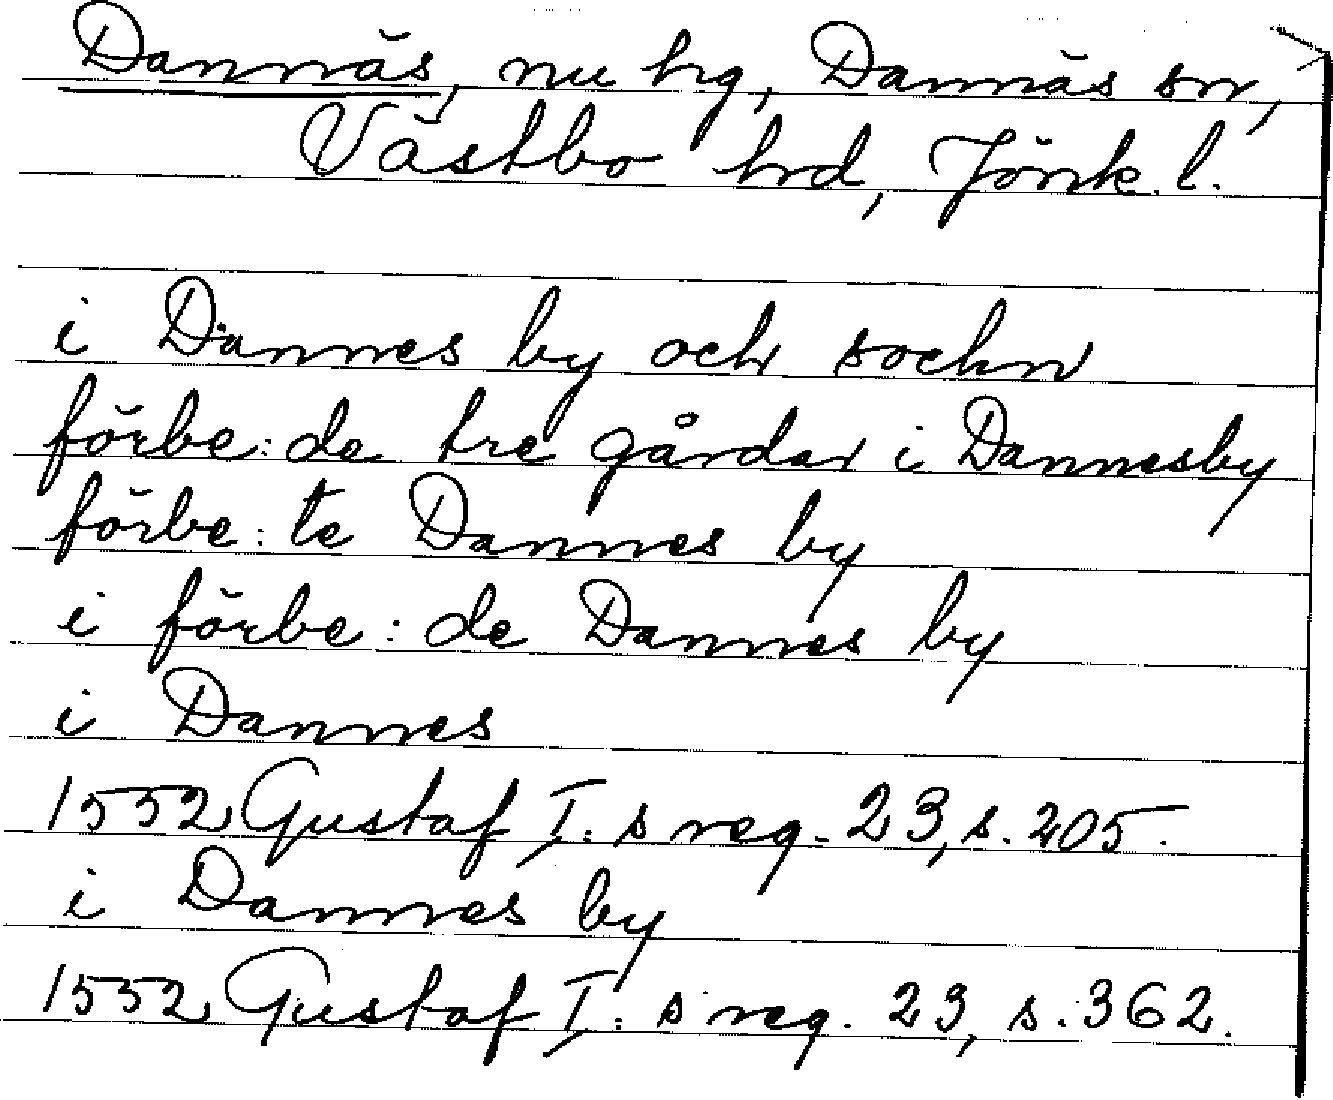 Dannäs, nu hg, Dannäs sn,
Västbo hrd, Jönk. l.
i Dannes by och sochn
förbe: de tre gårdar i Dannesby
förbe: te Dannes by
i förbe: de Dannes by
i Dannes
1552 Gustaf I: s reg. 23, s. 205.
i Dannes by
1552 Gustaf I: s reg. 23, s. 362.